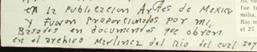 en la Publicacion Artes de Mexico
y fueron Proporcionados por mi,
Basados en documentos que obran
en el archivo Martinez del Rio del cual soy